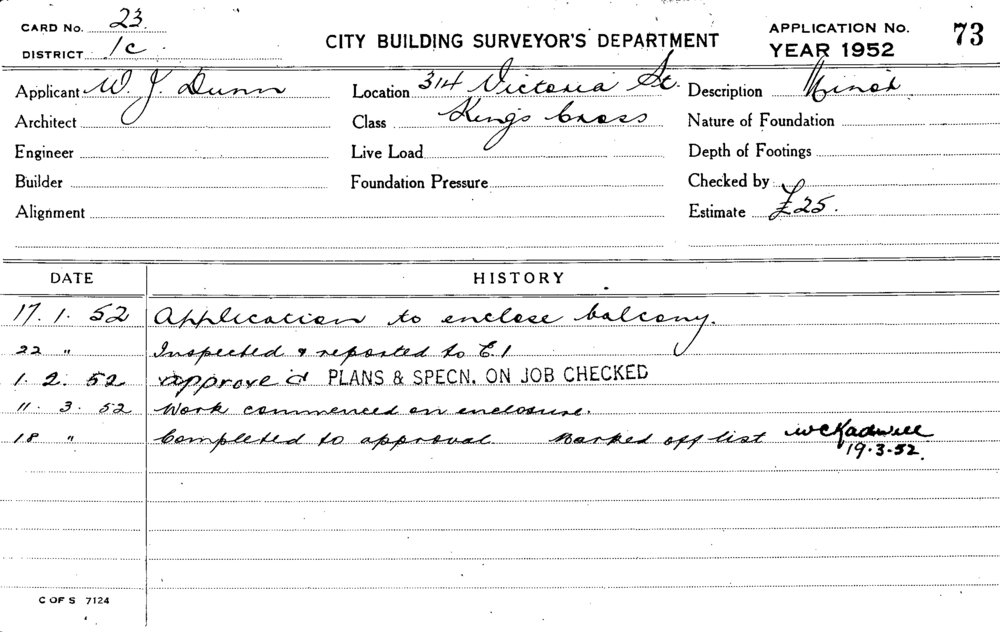 CARD No. 23
DISTRICT 1c
CITY BUILDING SURVEYOR'S DEPARTMENT
APPLICATION No. 73
YEAR 1952
Applicant W. J. Dunn
Architect
Engineer
Builder
Alignment
Location 314 Victoria St.
Class Kings Cross
Live Load
Foundation Pressure
Description Minor
Nature of Foundation
Depth of Footings
Checked by
Estimate £25.
DATE HISTORY
17. 1. 52 Application to enclose balcony.
22 " Inspected & reported to E.1
1. 2. 52 approved PLANS & SPECN. ON JOB CHECKED
11. 3. 52 Work commenced on enclosure.
18 " Completed to approval. Marked off list WCKadwell
19.3.52.
C OF S 7124